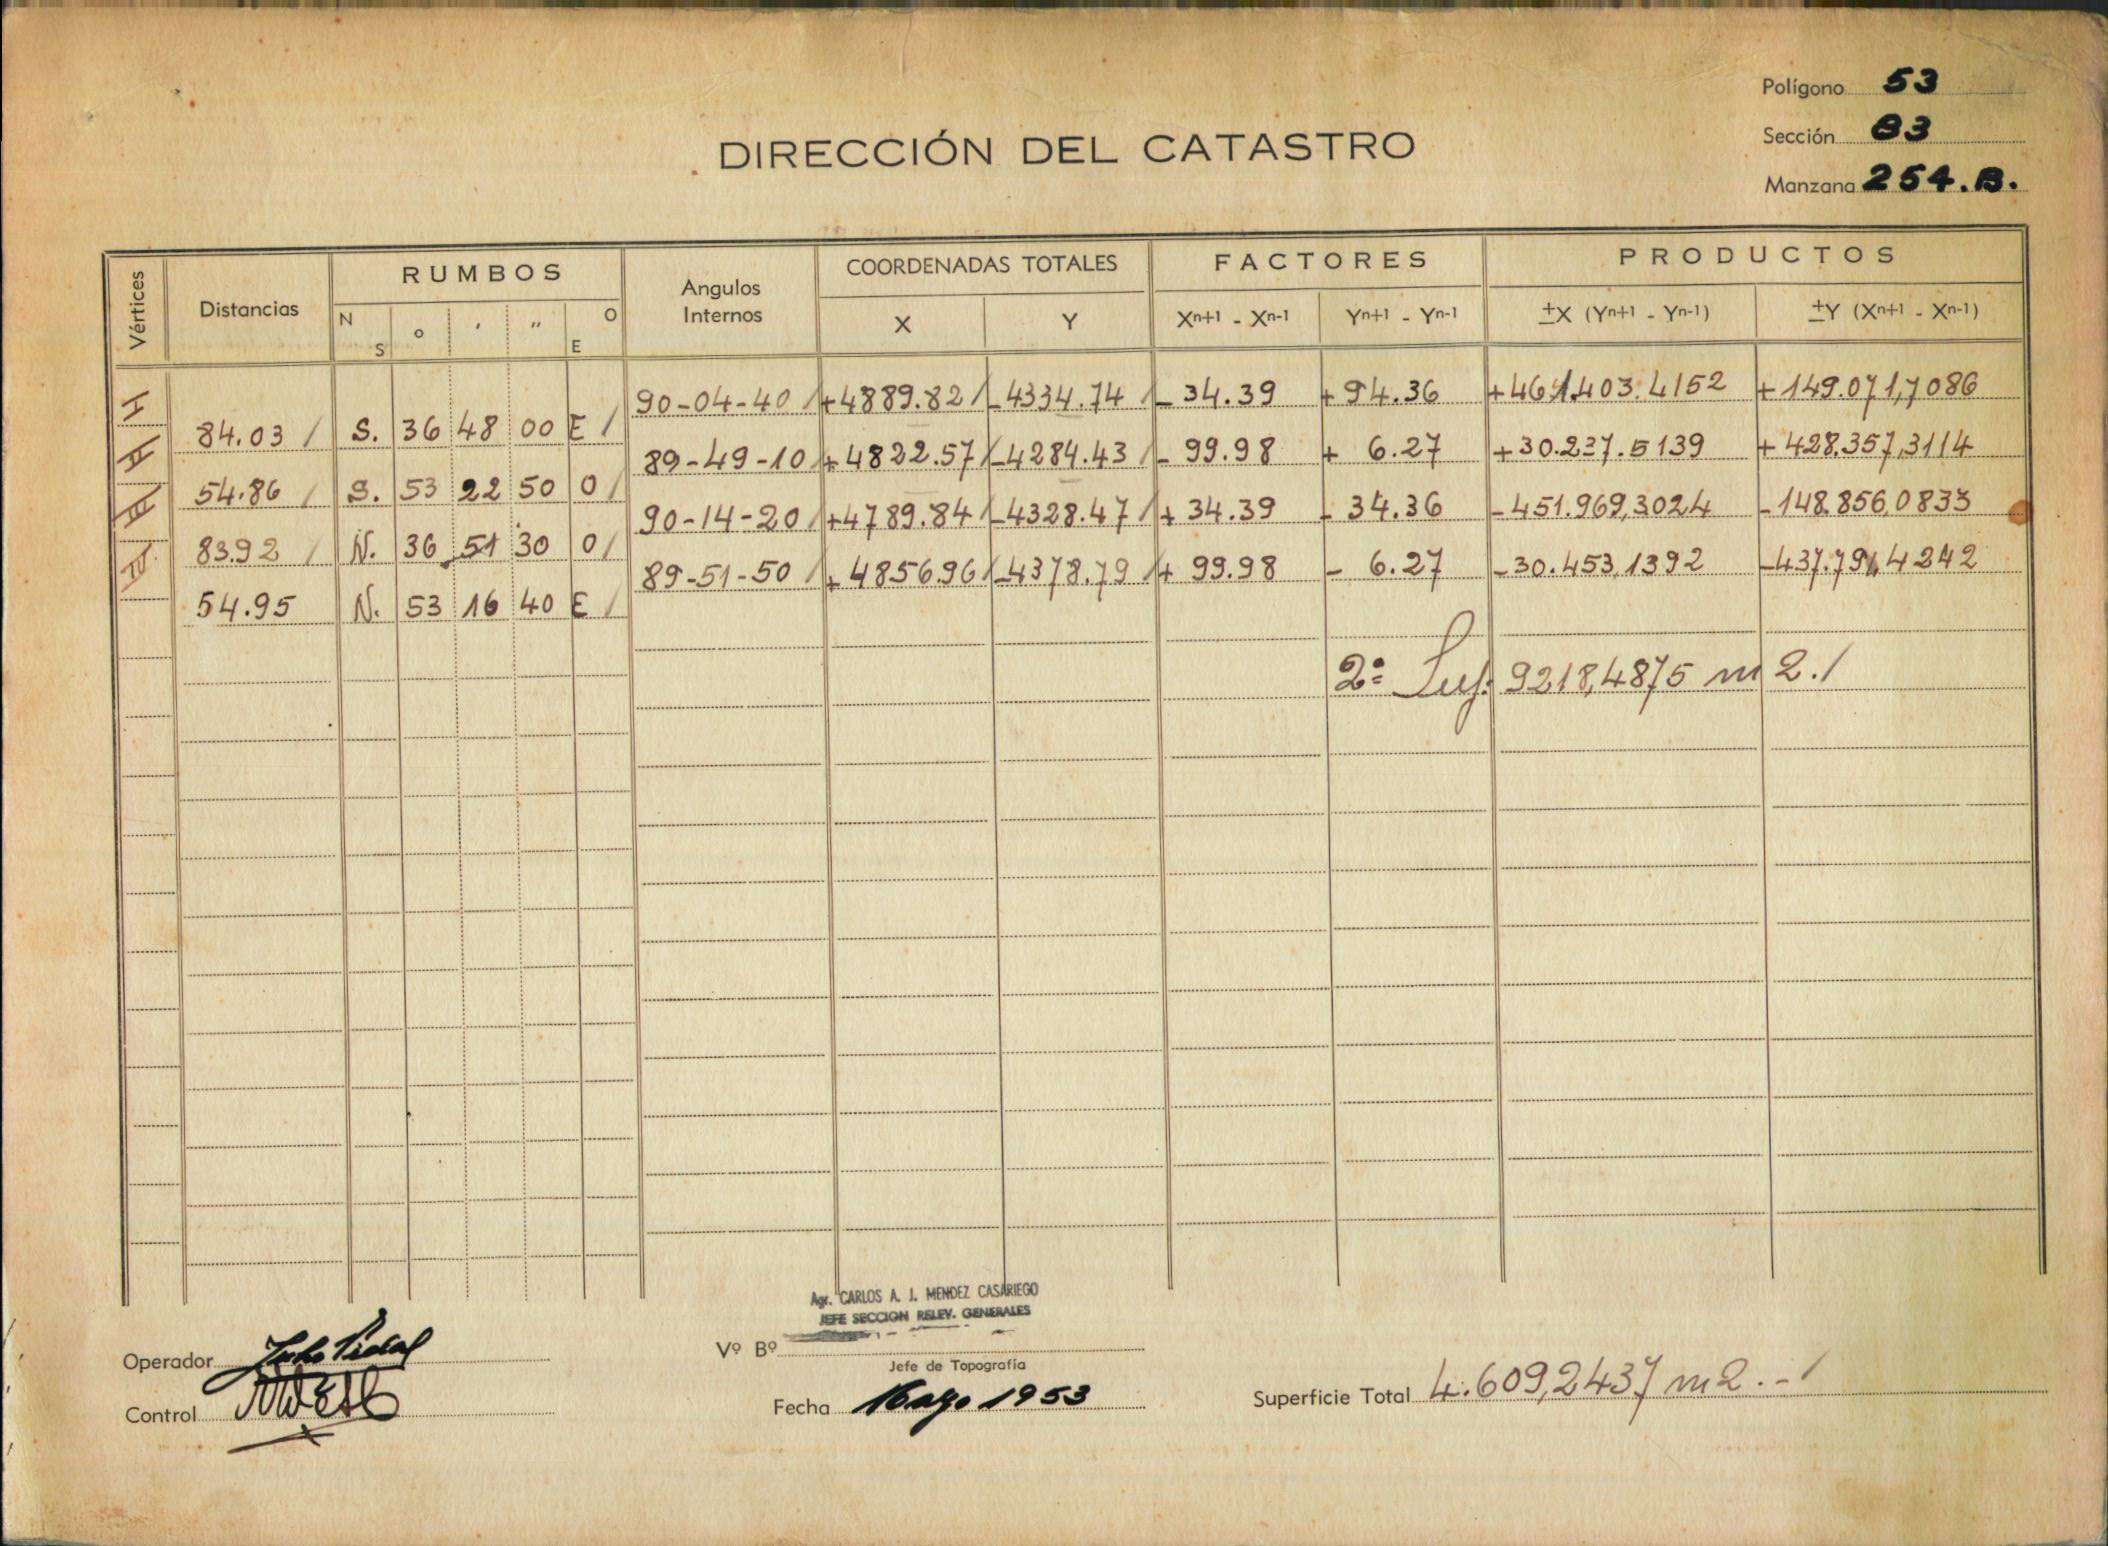 Polígono 53
Sección 83
Manzana 254.B.
DIRECCIÓN DEL CATASTRO
Vértices Distancias RUMBOS Angulos Internos COORDENADAS TOTALES FACTORES PRODUCTOS
N S ° ' '' O E X Y Xn+1 - Xn-1 Yn+1 - Yn-1 ±X (Yn+1 - Yn-1) ±Y (Xn+1 - Xn-1)
I 90-04-40 / +4889.82 / -4334.74 / - 34.39 + 94.36 +461.403.4152 + 149.071,7086
84.03 / S. 36 48 00 E /
II 89-49-10 +4822.57 / -4284.43 / - 99.98 + 6.27 +30.237.5139 + 428.357,3114
54.86 / S. 53 22 50 O /
III 90-14-20 / +4789.84 / -4328.47 / + 34.39 - 34.36 -451.969,3024 -148.856,0833
83.92 / N. 36 51 30 O /
IV 89-51-50 / + 4856.96 / -4378.79 / + 99.98 - 6.27 -30.453,1392 -437.791,4242
54.95 N. 53 16 40 E /
2ª Sup. 9218,4875 m2./
Agr. CARLOS A. J. MENDEZ CASARIEGO
JEFE SECCION RELEV. GENERALES
Operador Julio Vidal
Vº Bº
Jefe de Topografía
Control
Fecha 1953
Superficie Total 4.609,2437 m2.-/